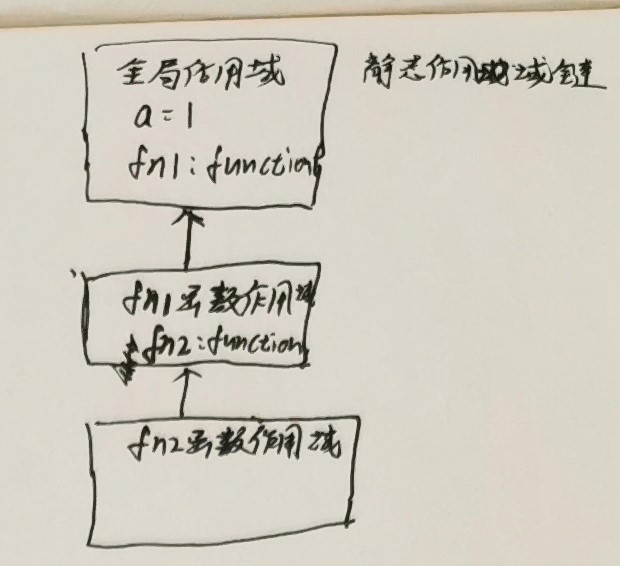 全局作用域
静态作用域链
a = 1
fn1: function
fn1函数作用域
fn2: function
fn2函数作用域